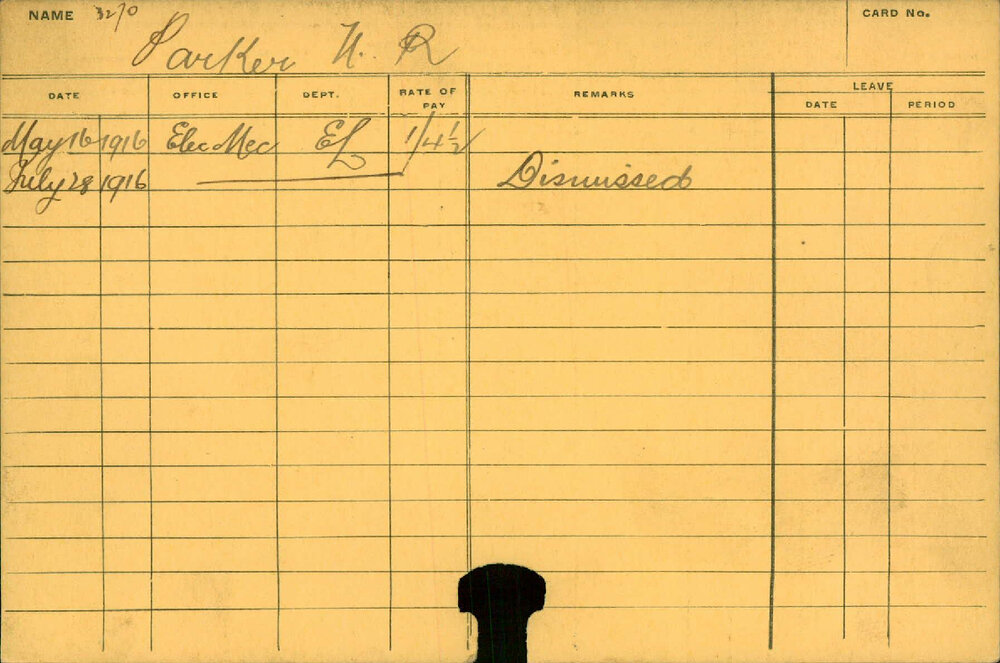 NAME 3270 CARD No.
Parker H. R
DATE OFFICE DEPT. RATE OF PAY REMARKS LEAVE
DATE PERIOD
May 16 1916 Elec Mec EL 1/4½
July 28 1916 Dismissed